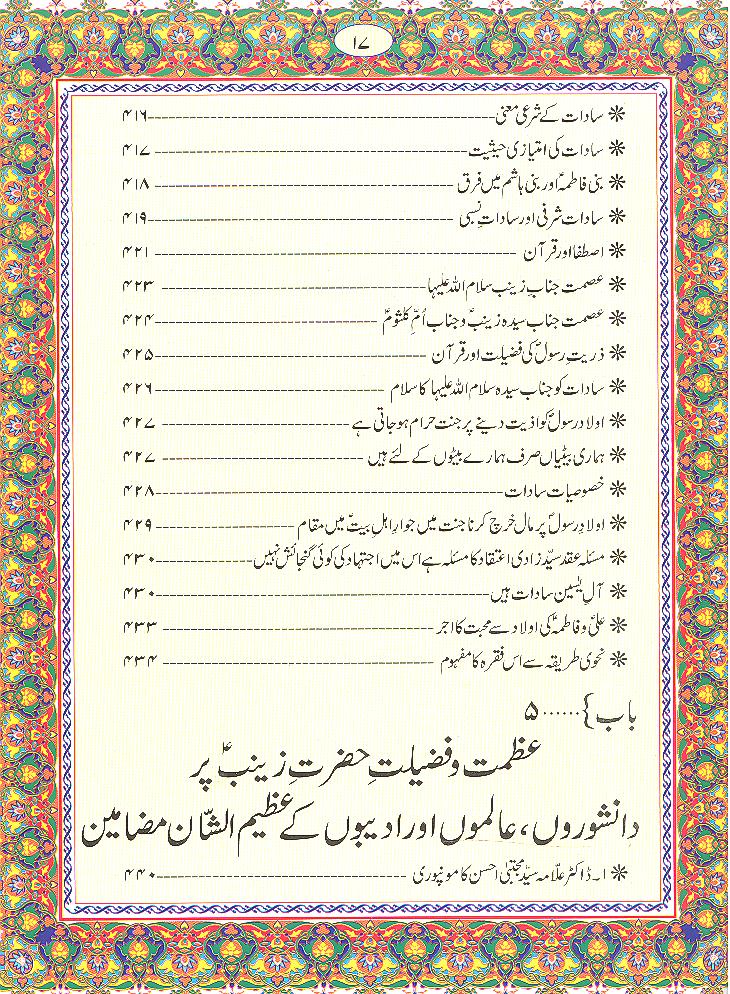 ۱۷
❋ سادات کے شرعی معنی ---------- ۴۱۶
❋ سادات کی امتیازی حیثیت ---------- ۴۱۷
❋ بنی فاطمہؑ اور بنی ہاشم میں فرق ---------- ۴۱۸
❋ سادات شرفی اور ساداتِ نسبی ---------- ۴۱۹
❋ اصطفا اور قرآن ---------- ۴۲۱
❋ عصمت جنابِ زینب سلام اللہ علیہا ---------- ۴۲۳
❋ عصمت جناب سیدہ زینبؑ و جناب اُمِّ کلثومؑ ---------- ۴۲۴
❋ ذریتِ رسولؐ کی فضیلت اور قرآن ---------- ۴۲۵
❋ سادات کو جناب سیدہ سلام اللہ علیہا کا سلام ---------- ۴۲۶
❋ اولادِ رسولؐ کو اذیت دینے پر جنت حرام ہو جاتی ہے ---------- ۴۲۷
❋ ہماری بیٹیاں صرف ہمارے بیٹوں کے لئے ہیں ---------- ۴۲۷
❋ خصوصیات سادات ---------- ۴۲۸
❋ اولادِ رسولؐ پر مال خرچ کرنا جنت میں جوارِ اہلِ بیتؑ میں مقام ---------- ۴۲۹
❋ مسئلہ عقد سیّد زادی اعتقاد کا مسئلہ ہے اس میں اجتہاد کی کوئی گنجائش نہیں ---------- ۴۳۰
❋ آلِ یٰسین سادات ہیں ---------- ۴۳۰
❋ علیؑ و فاطمہؑ کی اولاد سے محبت کا اجر ---------- ۴۳۳
❋ نحوی طریقہ سے اس فقرہ کا مفہوم ---------- ۴۳۴
باب}......۵
عظمت و فضیلتِ حضرتِ زینبؑ پر
دانشوروں، عالموں اور ادیبوں کے عظیم الشّان مضامین
❋ ۱۔ ڈاکٹر علّامہ سیّد مجتبیٰ احسن کامونپوری ---------- ۴۴۰